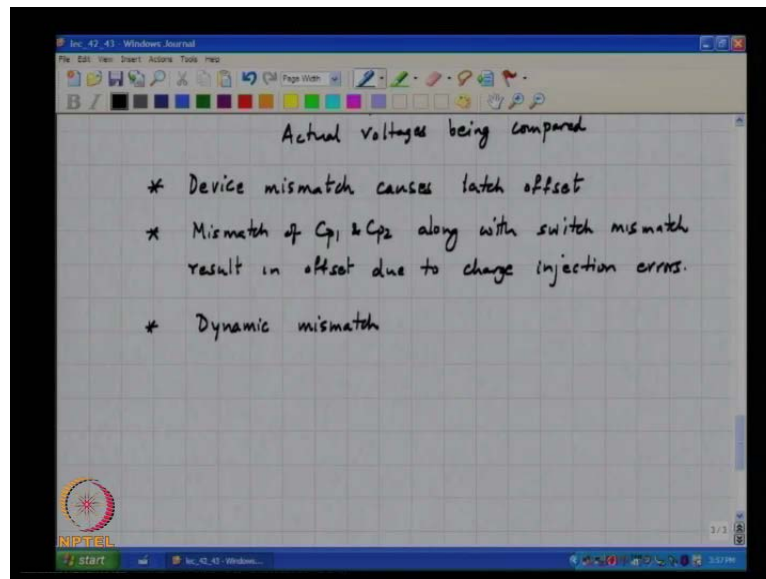 lec_42_43 - Windows Journal
File Edit View Insert Actions Tools Help
Page Width
B I
Actual voltages being compared
* Device mismatch causes latch offset
* Mismatch of Cp1 & Cp2 along with switch mismatch
result in offset due to charge injection errors.
* Dynamic mismatch
3/3
NPTEL
start
lec_42_43 - Windows...
3:57 PM